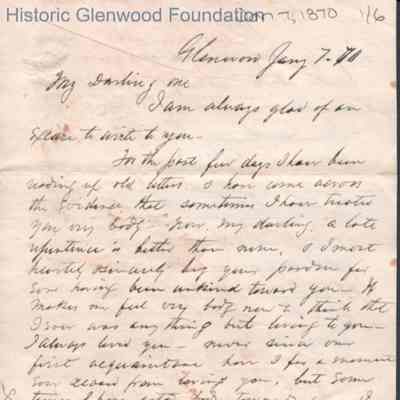 Historic Glenwood Foundation
Jan 7, 1870 1/6
Glenwood Jany 7. 70
My Darling one
I am always glad of an
excuse to write to you -
For the past few days I have been
reading up old letters & have come across
the evidence that sometimes I have treated
you very badly - Now, my darling, a late
repentance is better than none, & I most
heartily & sincerely beg your pardon for
ever having been unkind toward you - It
makes me feel very badly now to think that
I ever was any thing but loving to you -
I always loved you - never since our
first acquaintance have I for a moment
ever ceased from loving you, but some
times I have